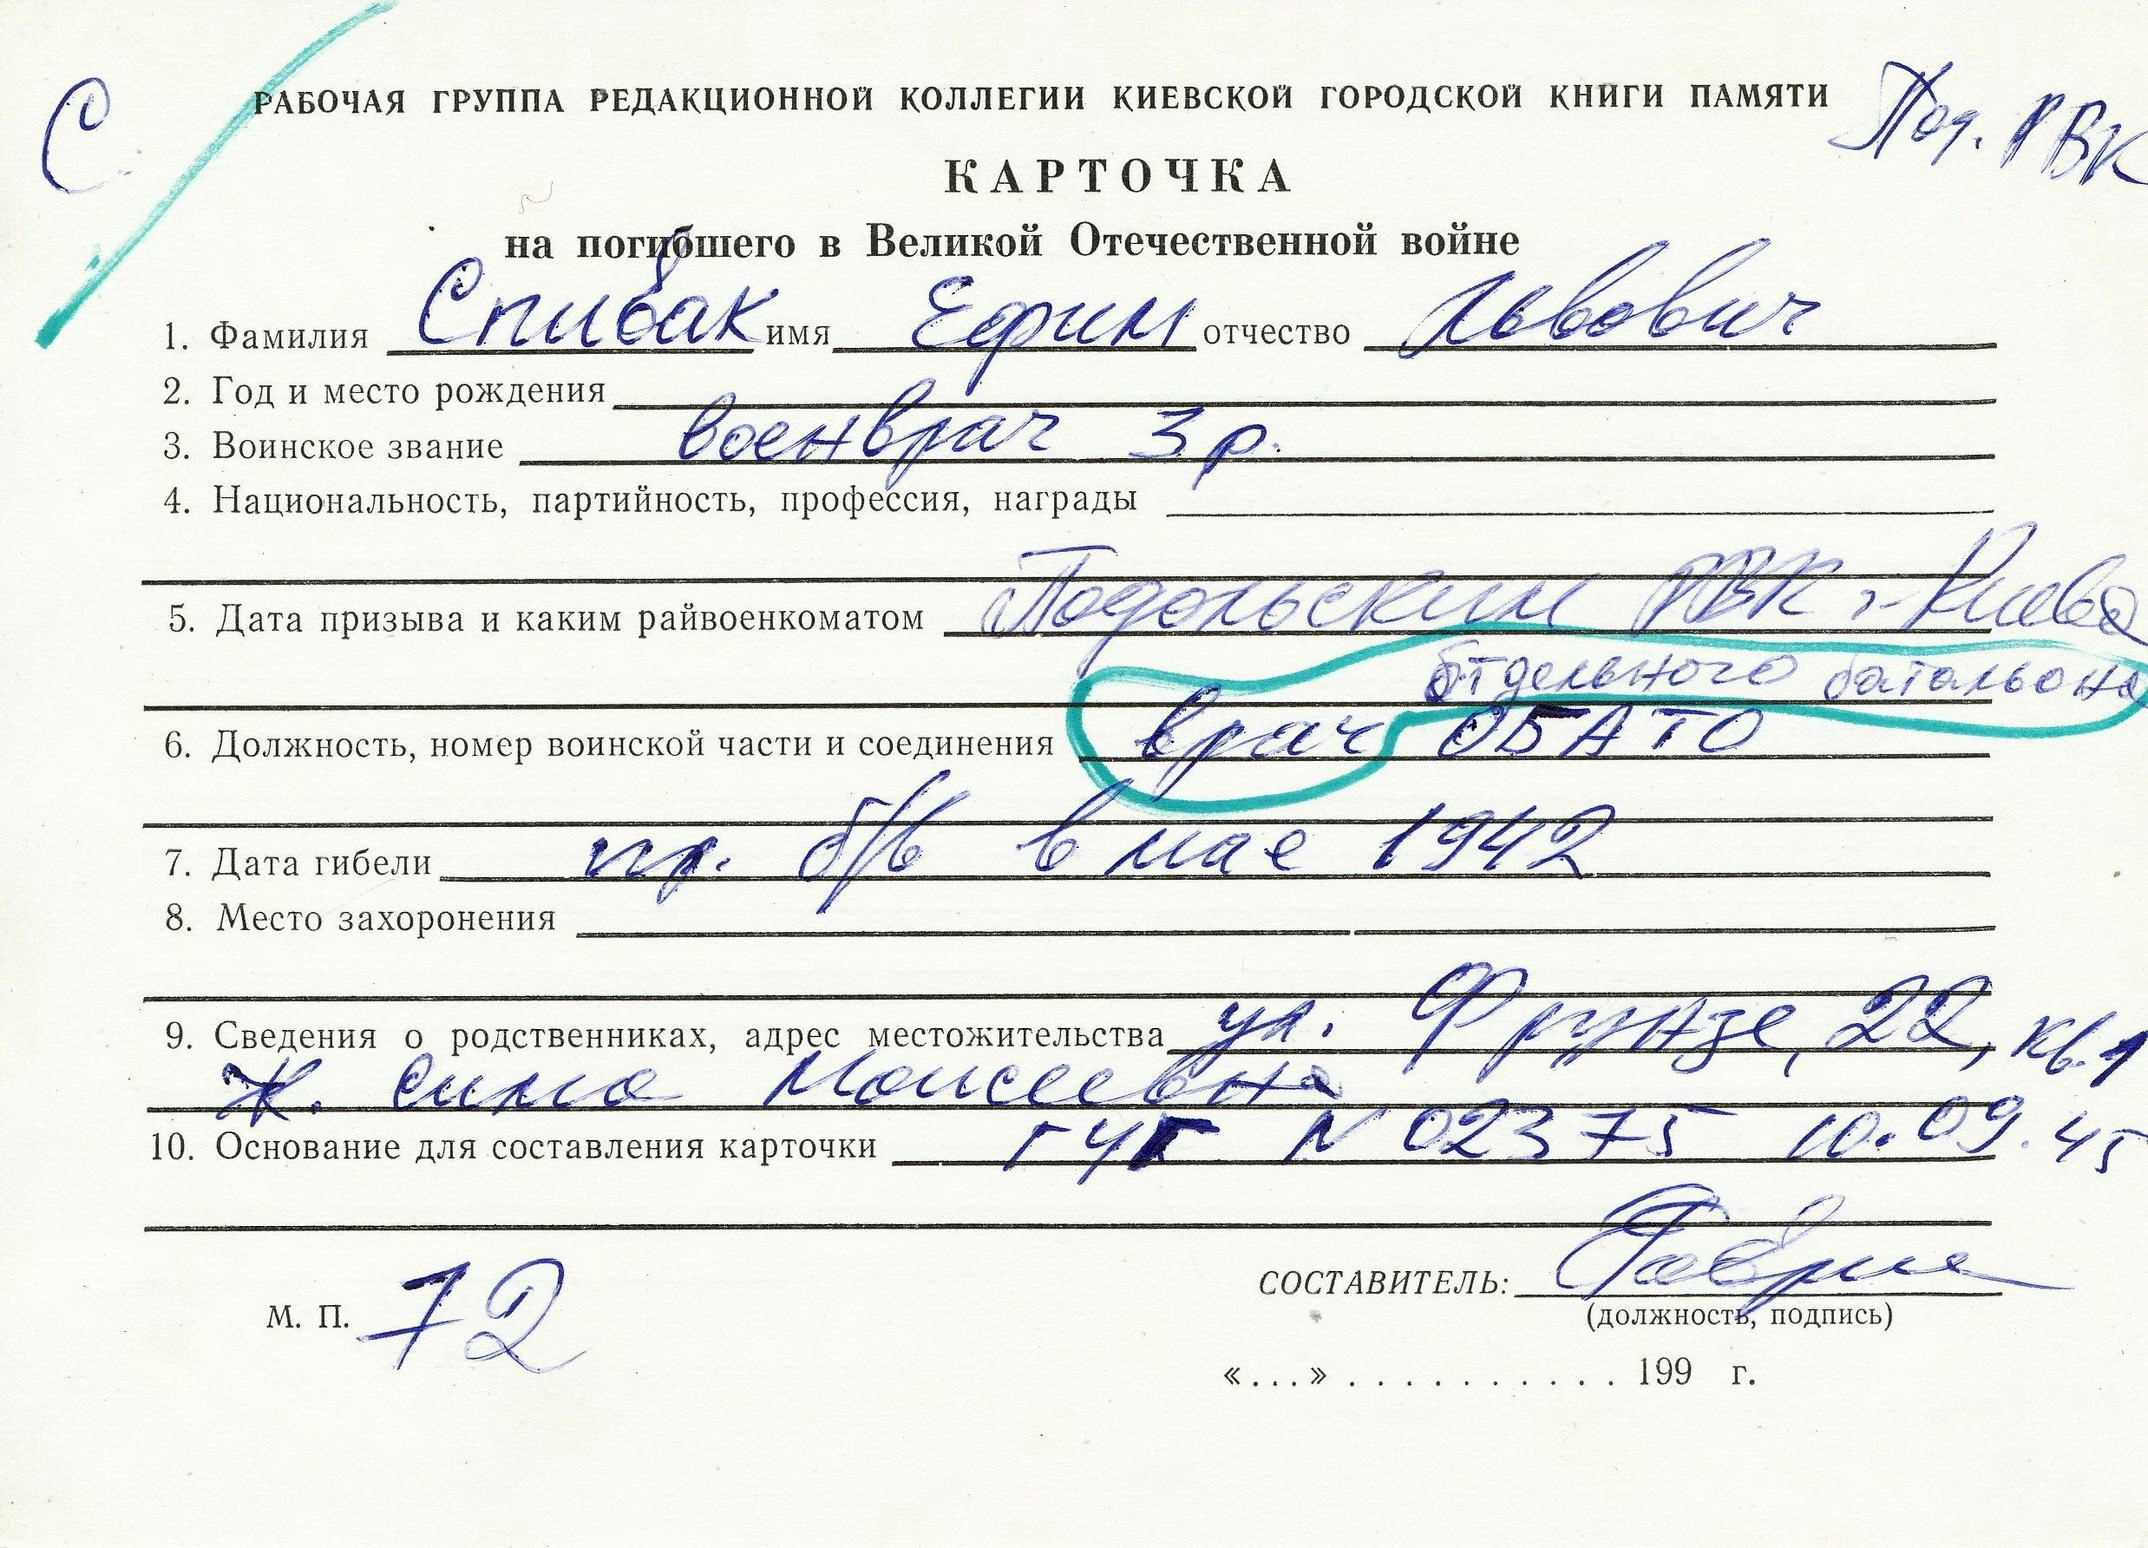 С
РАБОЧАЯ ГРУППА РЕДАКЦИОННОЙ КОЛЛЕГИИ КИЕВСКОЙ ГОРОДСКОЙ КНИГИ ПАМЯТИ
Под. РВК
КАРТОЧКА
на погибшего в Великой Отечественной войне
1. Фамилия Спивак имя Ефим отчество Львович
2. Год и место рождения
3. Воинское звание военврач 3 р.
4. Национальность, партийность, профессия, награды
5. Дата призыва и каким райвоенкоматом Подольским РВК г. Киева
отдельного батальона
6. Должность, номер воинской части и соединения врач ОБАТО
7. Дата гибели пр. б/в в мае 1942
8. Место захоронения
9. Сведения о родственниках, адрес местожительства ул. Фрунзе, 22, кв. 1
ж. Сима Моисеевна
10. Основание для составления карточки N 02375 10.09.45
СОСТАВИТЕЛЬ:
(должность, подпись)
М. П. 72
«...» . . . . . . . . . . . 199 г.